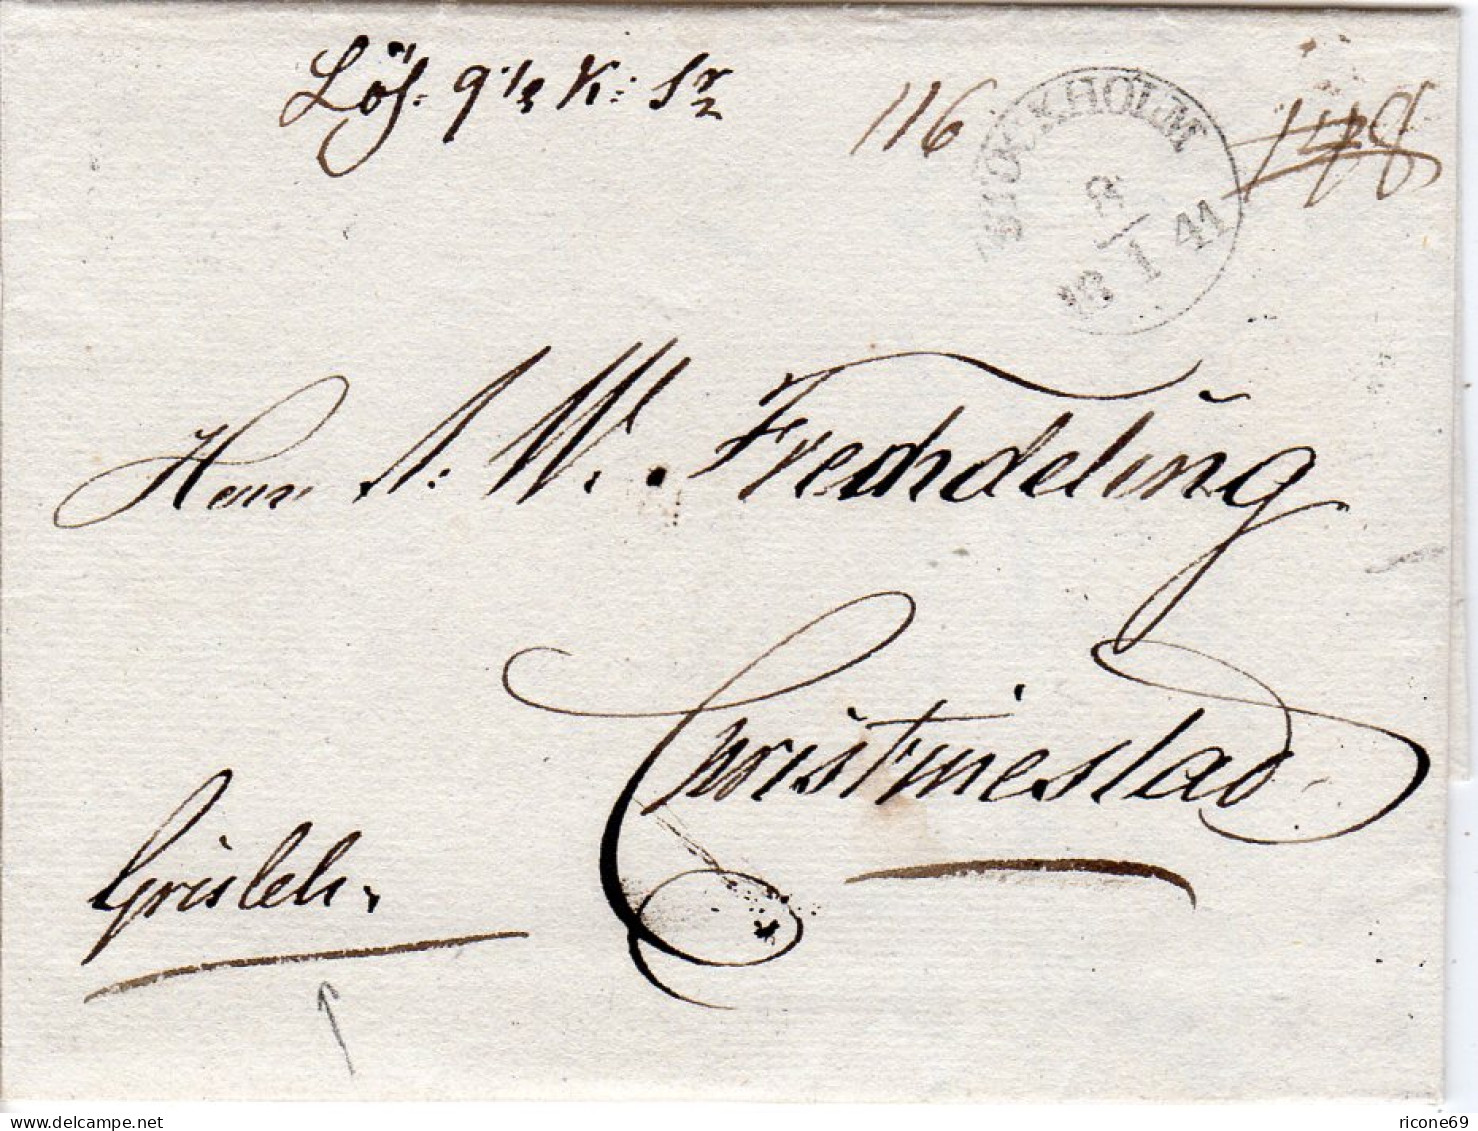 Lös: 9 1/2 K: Sr
116
148
STOCKHOLM
8
18 1 41
Herr A: W. Frechdeling
Christinestad
Grisleh:
delcampe.net
ricone69